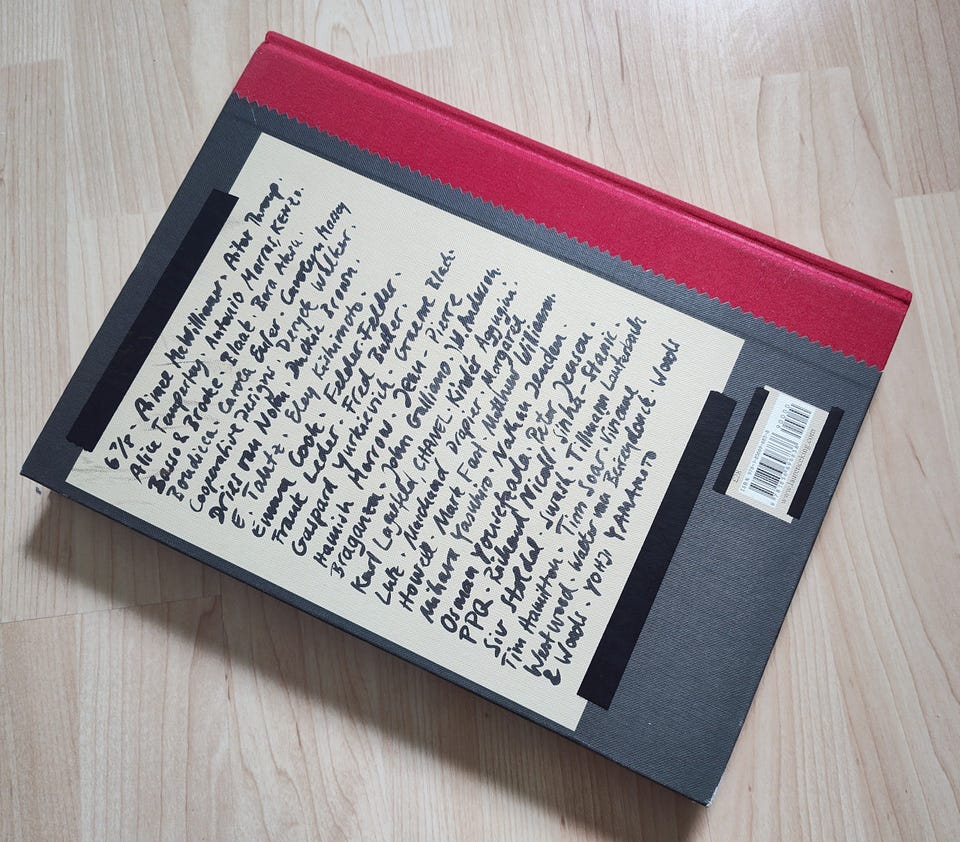 6%. Aimee McWilliams. Aitor Throup.
Alice Temperley. Antonio Marras, KENZO.
Basso & Brooke. Blaak. Bora Aksu.
Boudicca. Carola Euler. Carolyn Massey
Cooperative Designs. Derek Walker.
Dries van Noten. Duckie Brown.
E. Tautz. Eley Kishimoto.
Emma Cook. Felder•Felder.
Frank Leder. Fred Butler.
Gaspard Yurkievich. Graeme Black.
Hamish Morrow. Jean-Pierre
Braganza. John Galliano. JW Anderson.
Karl Lagerfeld, CHANEL. Kinder Aggugini.
Lutz. Markland Draper. Margaret
Howell. Mark Fast. Matthew Williamson.
Mihara Yasuhiro. Nathan Jenden.
Osman Yousefzada. Peter Jensen.
PPQ. Richard Nicoll. Sinha-Stanic.
Siv Støldal. Swash. Tillmann Lauterbach
Tim Hamilton. Tim Soar. Vivienne
Westwood. Walter van Beirendonck. Woods
& Woods. YOHJI YAMAMOTO
£28
www.laurenceking.com